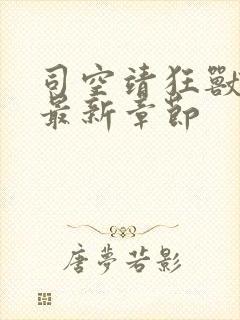 司空靖狂獸
最新章節
唐夢若影